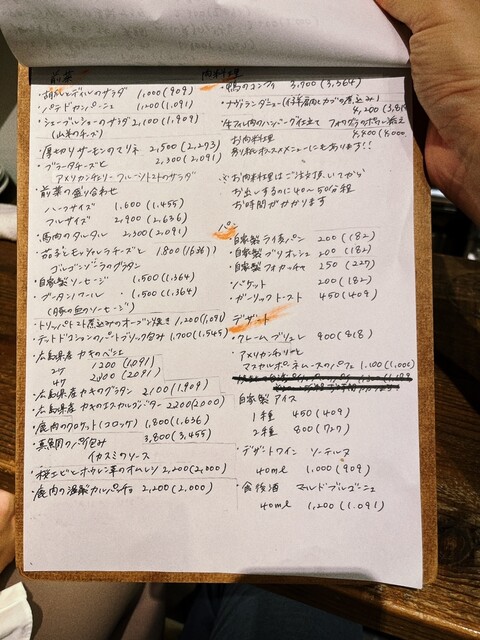 前菜
・胡瓜とディルのサラダ 1,000(909)
・パテドカンパーニュ 1,200(1,091)
・シェーブルショーのサラダ 2,100(1,909)
(山羊のチーズ)
・厚切りサーモンのマリネ 2,500(2,273)
・ブラータチーズと 2,300(2,091)
アメリカンチェリー フルーツトマトのサラダ
・前菜の盛り合わせ
ハーフサイズ 1,600(1,455)
フルサイズ 2,900(2,636)
・馬肉のタルタル 2,300(2,091)
・茄子とモッツァレラチーズと 1,800(1636)
ゴルゴンゾーラのグラタン
・自家製ソーセージ 1,500(1,364)
・ブータンノワール 1,500(1,364)
(豚の血のソーセージ)
・トリッパトマト煮込みのオーブン焼き 1,200(1,091)
・テットドコションのパートブリック包み 1,700(1,545)
・広島県産 カキのベニエ
2ケ 1,200(1,091)
4ケ 2,300(2,091)
・広島県産 カキのグラタン 2,100(1,909)
・広島県産 カキのエスカルゴバター 2200(2000)
・鹿肉のクロケット(コロッケ) 1,800(1,636)
・真鯛のパイ包み 3,800(3,455)
イカスミのソース
・桜エビとホウレン草のオムレツ 2,200(2,000)
・鹿肉の温製カルパッチョ 2,200(2,000)
肉料理
・鴨のコンフィ 3,700(3,364)
・ナヴァランダニョー(仔羊肩肉とカブの煮込み)
4,200(3,818
・牛フィレ肉のハンバーグ仕立て フォアグラのポワレ添え
(8,000
お肉料理
別紙オススメメニューにもあります!!
※お肉料理はご注文頂いてから
お出しするのに40〜50分程
お時間がかかります
パン
・自家製 ライ麦パン 200(182)
・自家製 ブリオッシュ 200(182)
・自家製 フォカッチャ 250(227)
・バゲット 200(182)
・ガーリックトースト 450(409)
デザート
・クレームブリュレ 900(818)
・アメリカンチェリーと
マスカルポーネムースのパフェ 1,100(1,000)
自家製 アイス
1種 450(409)
2種 800(727)
・デザートワイン ソーテルヌ
40ml 1,000(909)
・食後酒 マールドブルゴーニュ
40ml 1,200(1.091)